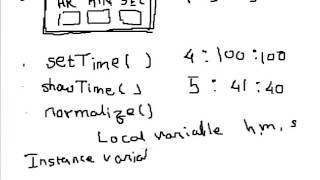 HR MIN SEC
. setTime( ) 4 : 100 : 100
. showTime( ) 5 : 41 : 40
. normalize()
Local variable h,m,s
Instance varial